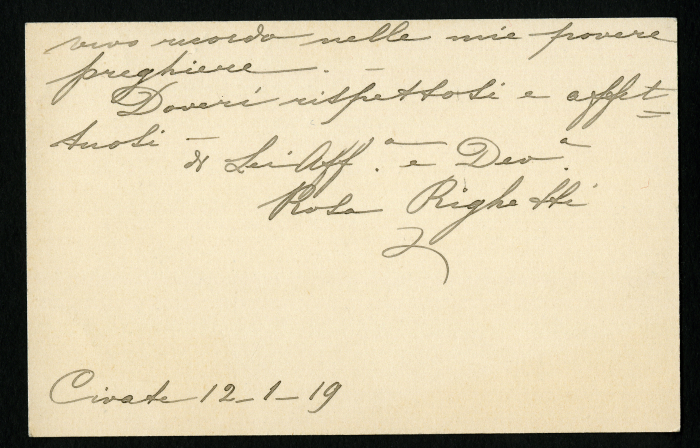 vivo ricordo nelle mie povere
preghiere. —
Doveri rispettosi e affet=
tuosi —
di Lei Aff.ª e Dev.ª
Rosa Righetti
Civate 12-1-19